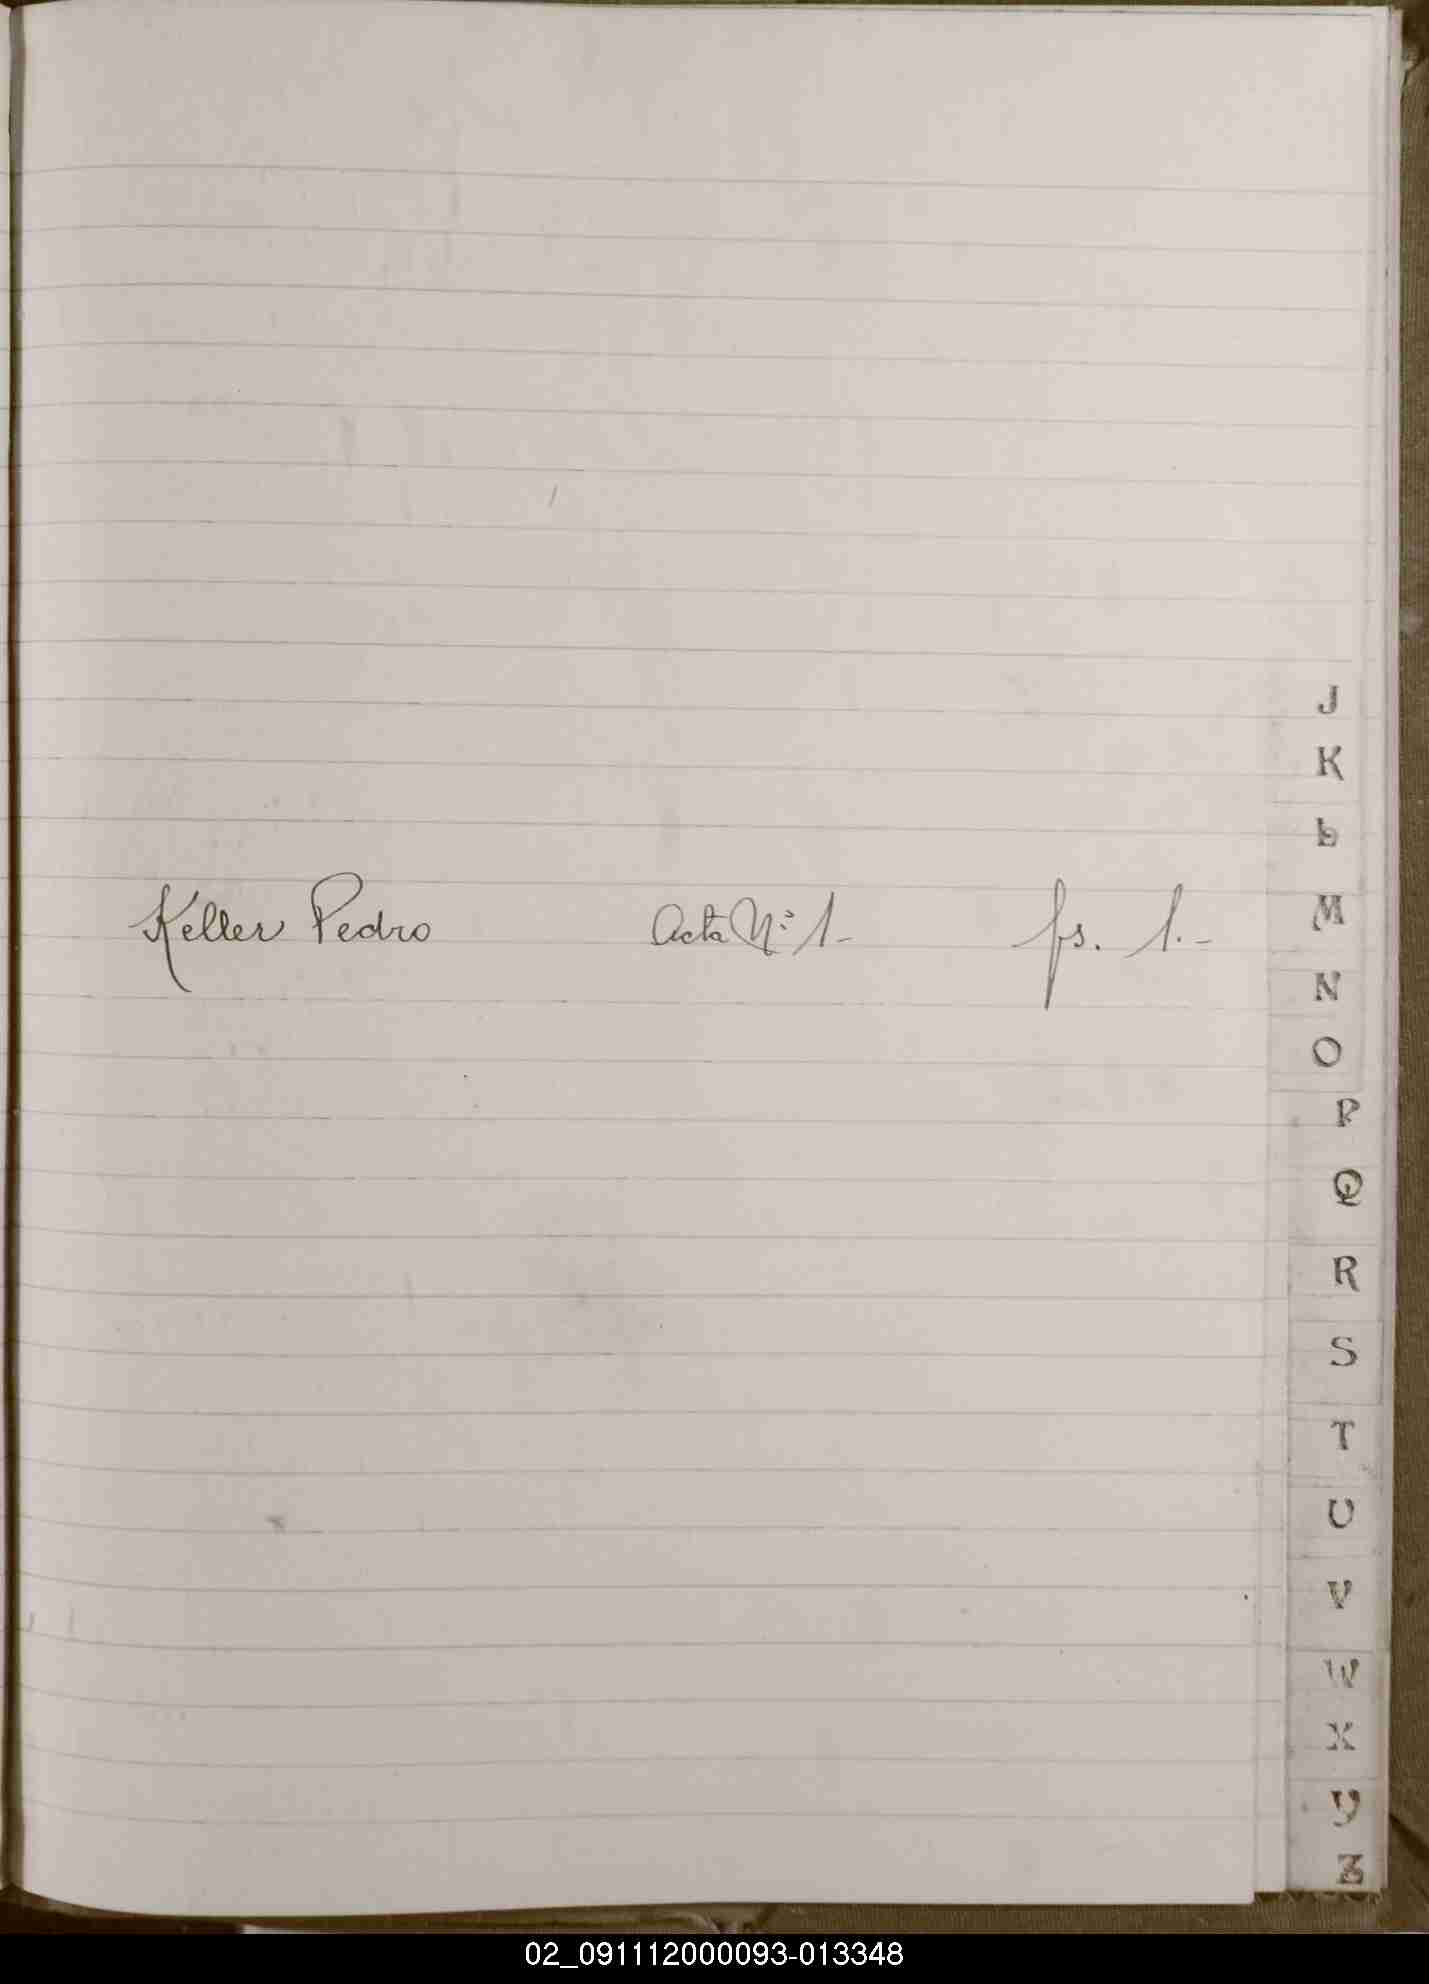 J
K
L
Keller Pedro Acta Nº 1- fs. 1.-
M
N
O
P
Q
R
S
T
U
V
W
X
Y
Z
02_091112000093-013348